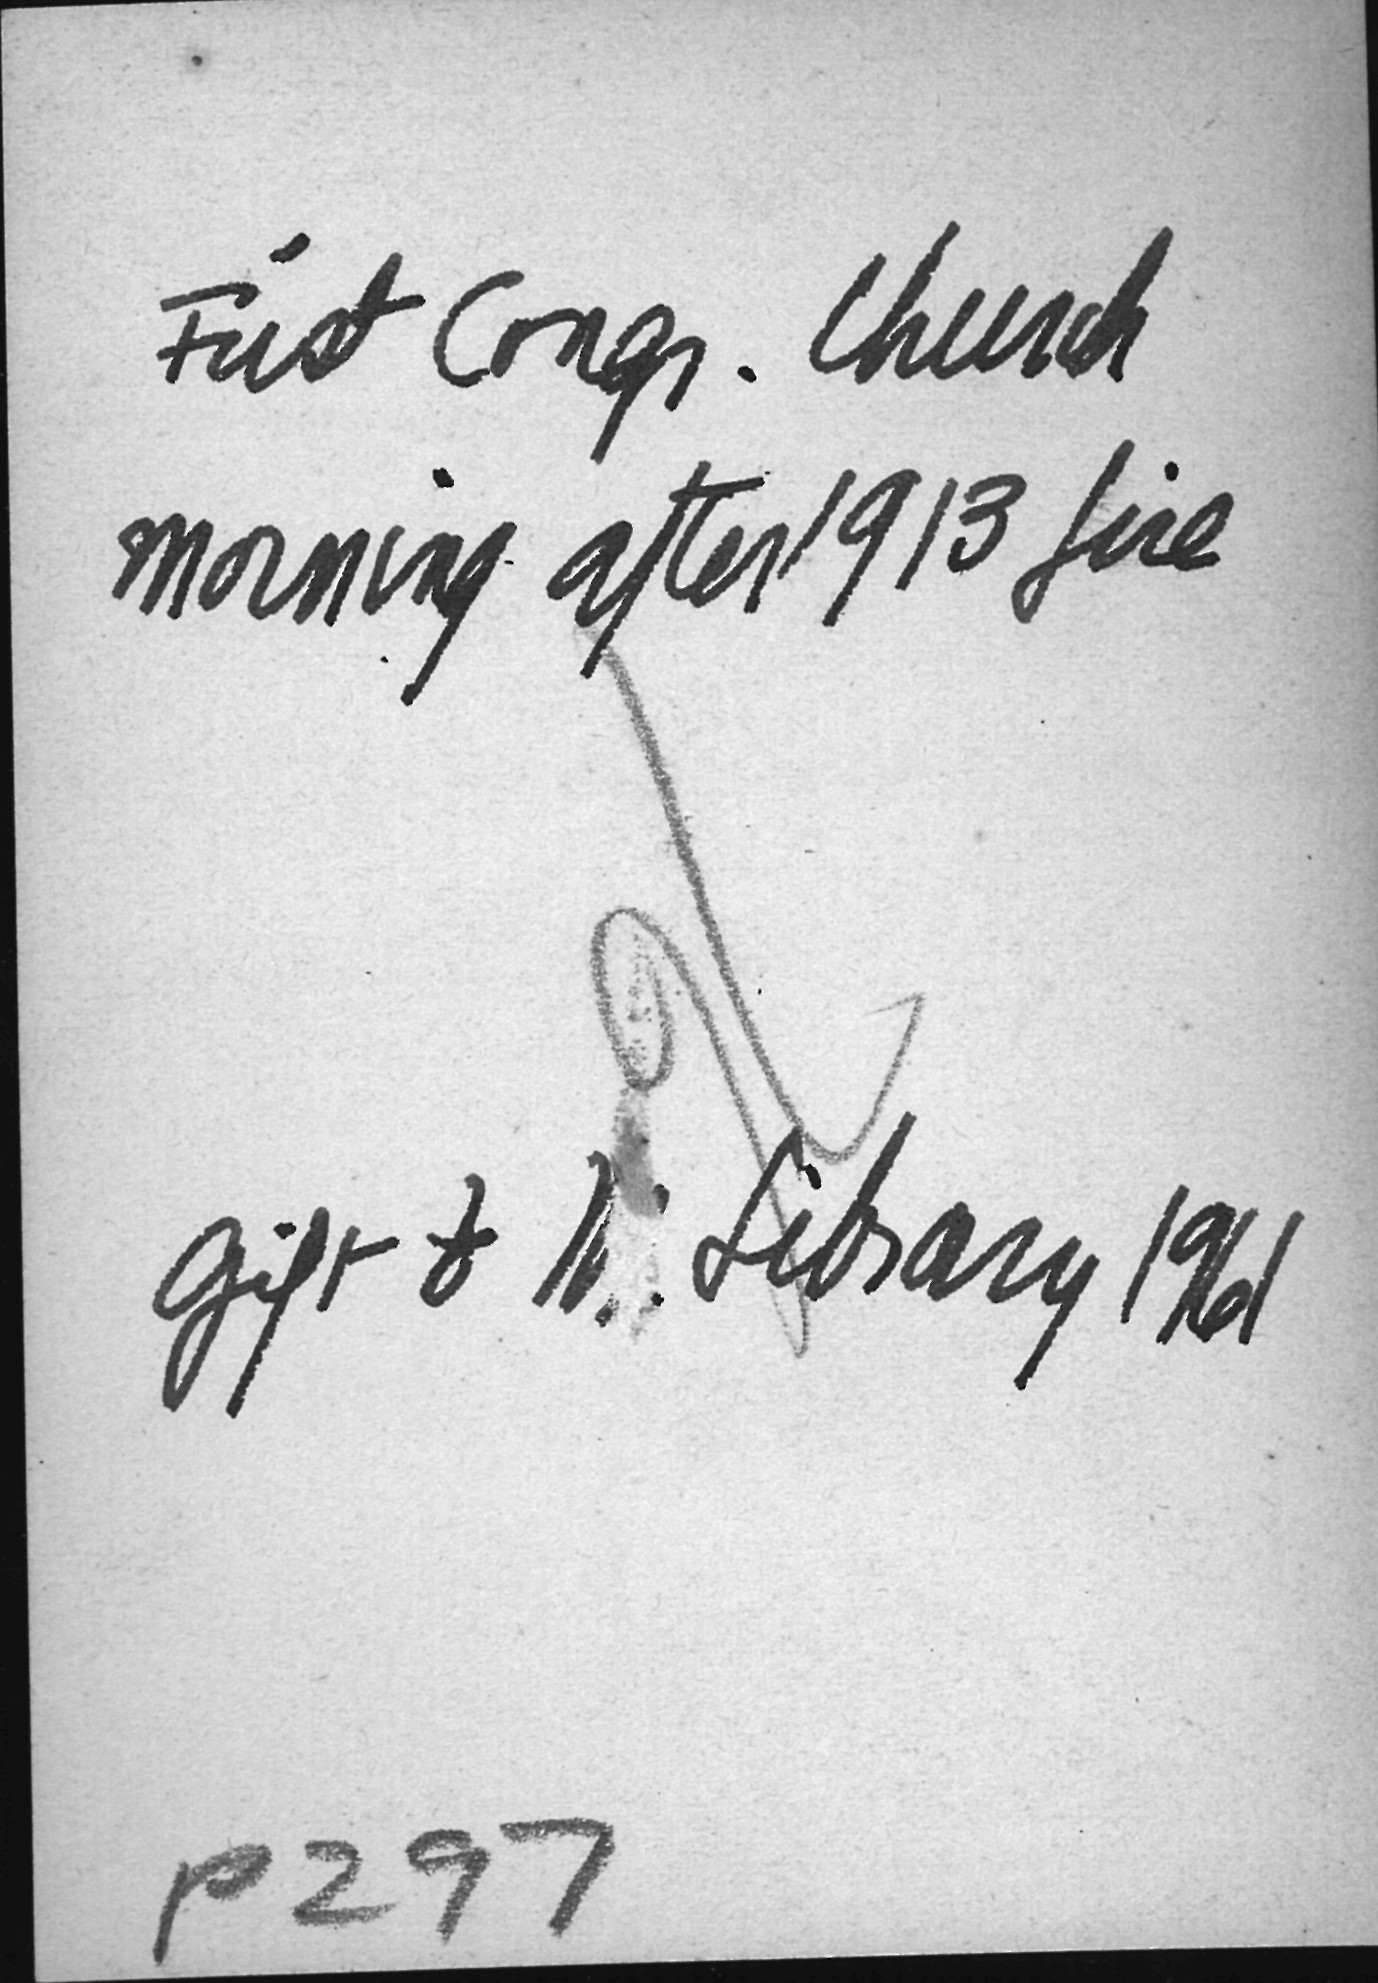 First Congr. Church
morning after 1913 fire
Gift to Library 1961
P297